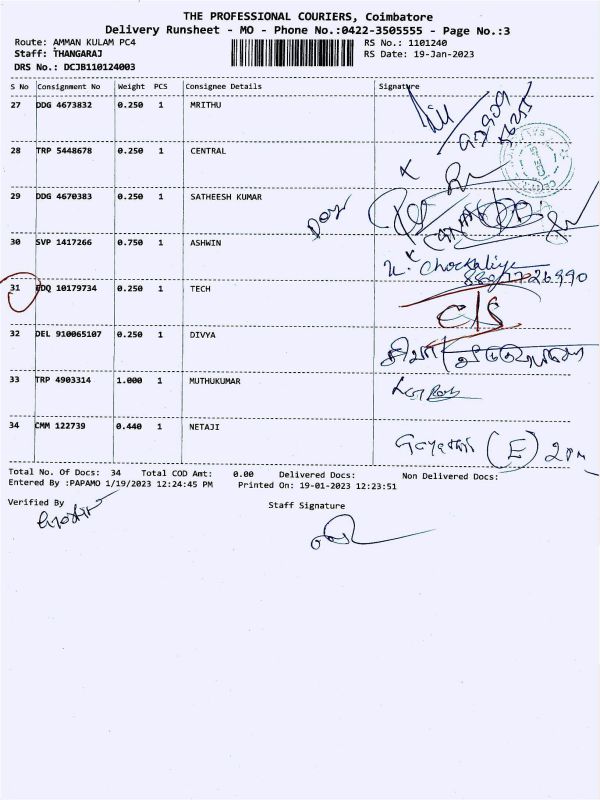 THE PROFESSIONAL COURIERS, Coimbatore
Delivery Runsheet - MO - Phone No.:0422-3505555 - Page No.:3
Route: AMMAN KULAM PC4
Staff: THANGARAJ
DRS No.: DCJB110124003
RS No.: 1101240
RS Date: 19-Jan-2023
S No Consignment No Weight PCS Consignee Details Signature
27 DDG 4673832 0.250 1 MRITHU
28 TRP 5448678 0.250 1 CENTRAL
29 DDG 4670383 0.250 1 SATHEESH KUMAR
30 SVP 1417266 0.750 1 ASHWIN
31 EDQ 10179734 0.250 1 TECH
C/S
32 DEL 910065107 0.250 1 DIVYA
33 TRP 4903314 1.000 1 MUTHUKUMAR
34 CMM 122739 0.440 1 NETAJI
(E) 2pm
Total No. Of Docs: 34 Total COD Amt: 0.00 Delivered Docs: Non Delivered Docs:
Entered By :PAPAMO 1/19/2023 12:24:45 PM Printed On: 19-01-2023 12:23:51
Verified By
Staff Signature